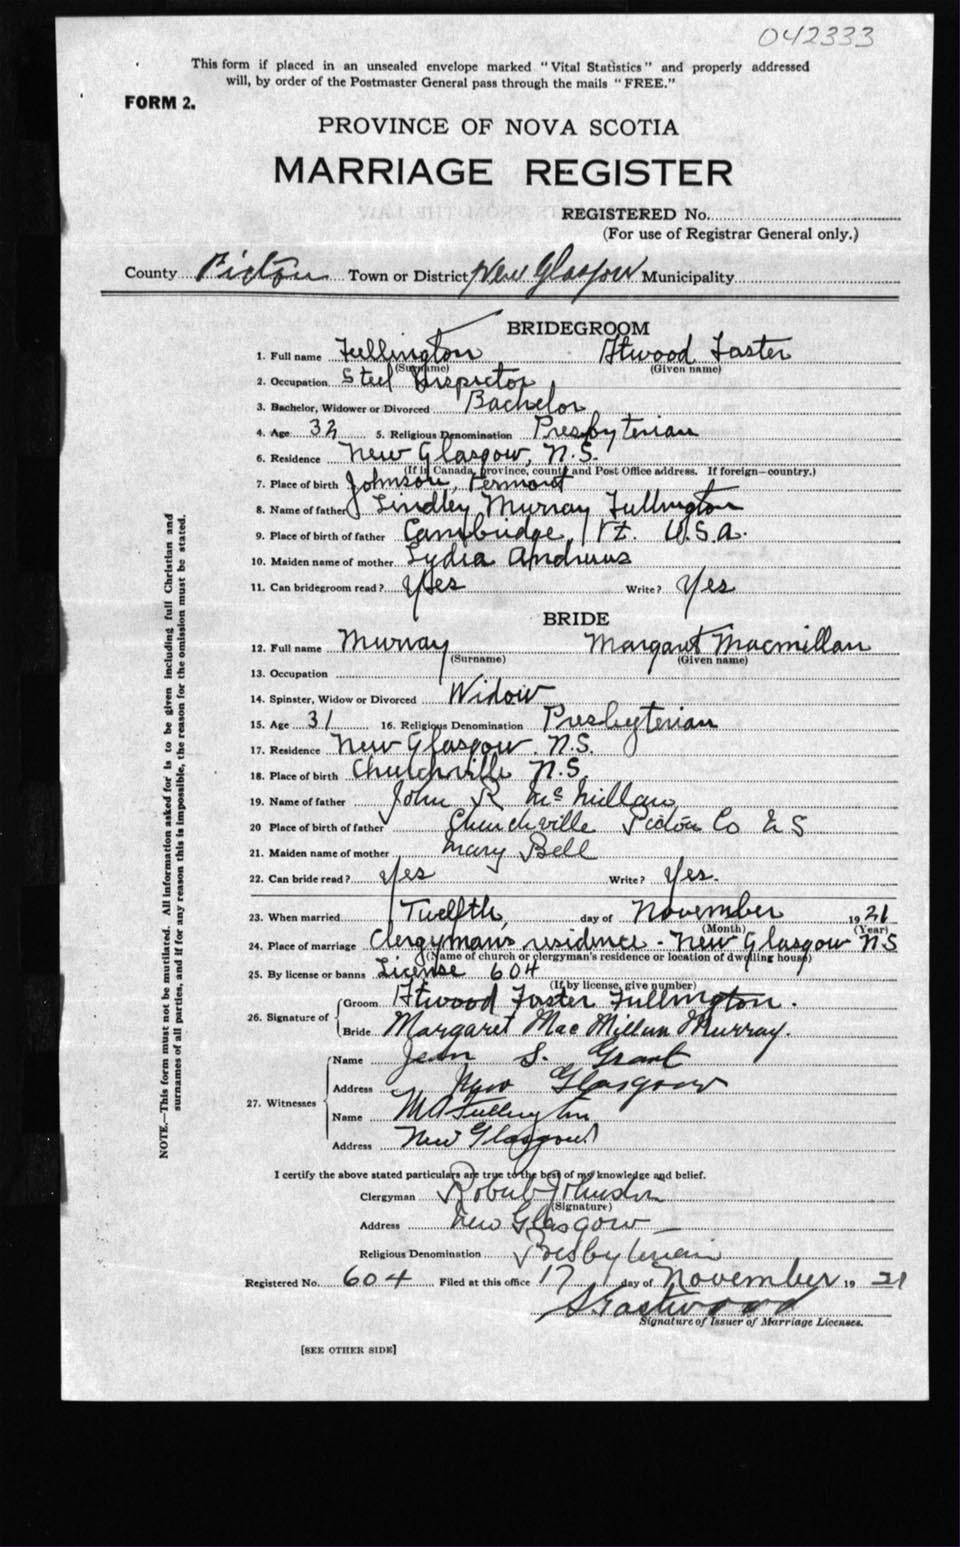 042333
This form if placed in an unsealed envelope marked "Vital Statistics" and properly addressed
will, by order of the Postmaster General pass through the mails "FREE."
FORM 2.
PROVINCE OF NOVA SCOTIA
MARRIAGE REGISTER
REGISTERED No.
(For use of Registrar General only.)
County Pictou Town or District New Glasgow Municipality
BRIDEGROOM
1. Full name Fullington Atwood Foster
(Surname) (Given name)
2. Occupation Steel Inspector
3. Bachelor, Widower or Divorced Bachelor
4. Age 32 5. Religious Denomination Presbyterian
6. Residence New Glasgow, N.S.
(If in Canada, province, county and Post Office address. If foreign—country.)
7. Place of birth Johnson, Vermont
8. Name of father Lindley Murray Fullington
9. Place of birth of father Cambridge, Vt. U.S.A.
10. Maiden name of mother Lydia Andrews
11. Can bridegroom read? Yes Write? Yes
BRIDE
12. Full name Murray Margaret Macmillan
(Surname) (Given name)
13. Occupation
14. Spinster, Widow or Divorced Widow
15. Age 31 16. Religious Denomination Presbyterian
17. Residence New Glasgow. N.S.
18. Place of birth Churchville N.S.
19. Name of father John R McMillan
20 Place of birth of father Churchville Pictou Co N S
21. Maiden name of mother Mary Bell
22. Can bride read? Yes Write? Yes.
23. When married Twelfth, day of November 1921
(Month) (Year)
24. Place of marriage Clergyman's residence - New Glasgow N S
(Name of church or clergyman's residence or location of dwelling house)
25. By license or banns License 604
(If by license, give number)
26. Signature of Groom Atwood Foster Fullington.
Bride Margaret MacMillan Murray.
27. Witnesses Name Jean S. Grant
Address New Glasgow
Name M A Fullington
Address New Glasgow
I certify the above stated particulars are true to the best of my knowledge and belief.
Clergyman Robert Johnston
(Signature)
Address New Glasgow
Religious Denomination Presbyterian
Registered No. 604 Filed at this office 17 day of November 19 21
Eastwood
Signature of Issuer of Marriage Licenses.
[SEE OTHER SIDE]
NOTE.—This form must not be mutilated. All information asked for is to be given including full Christian and
surnames of all parties, and if for any reason this is impossible, the reason for the omission must be stated.